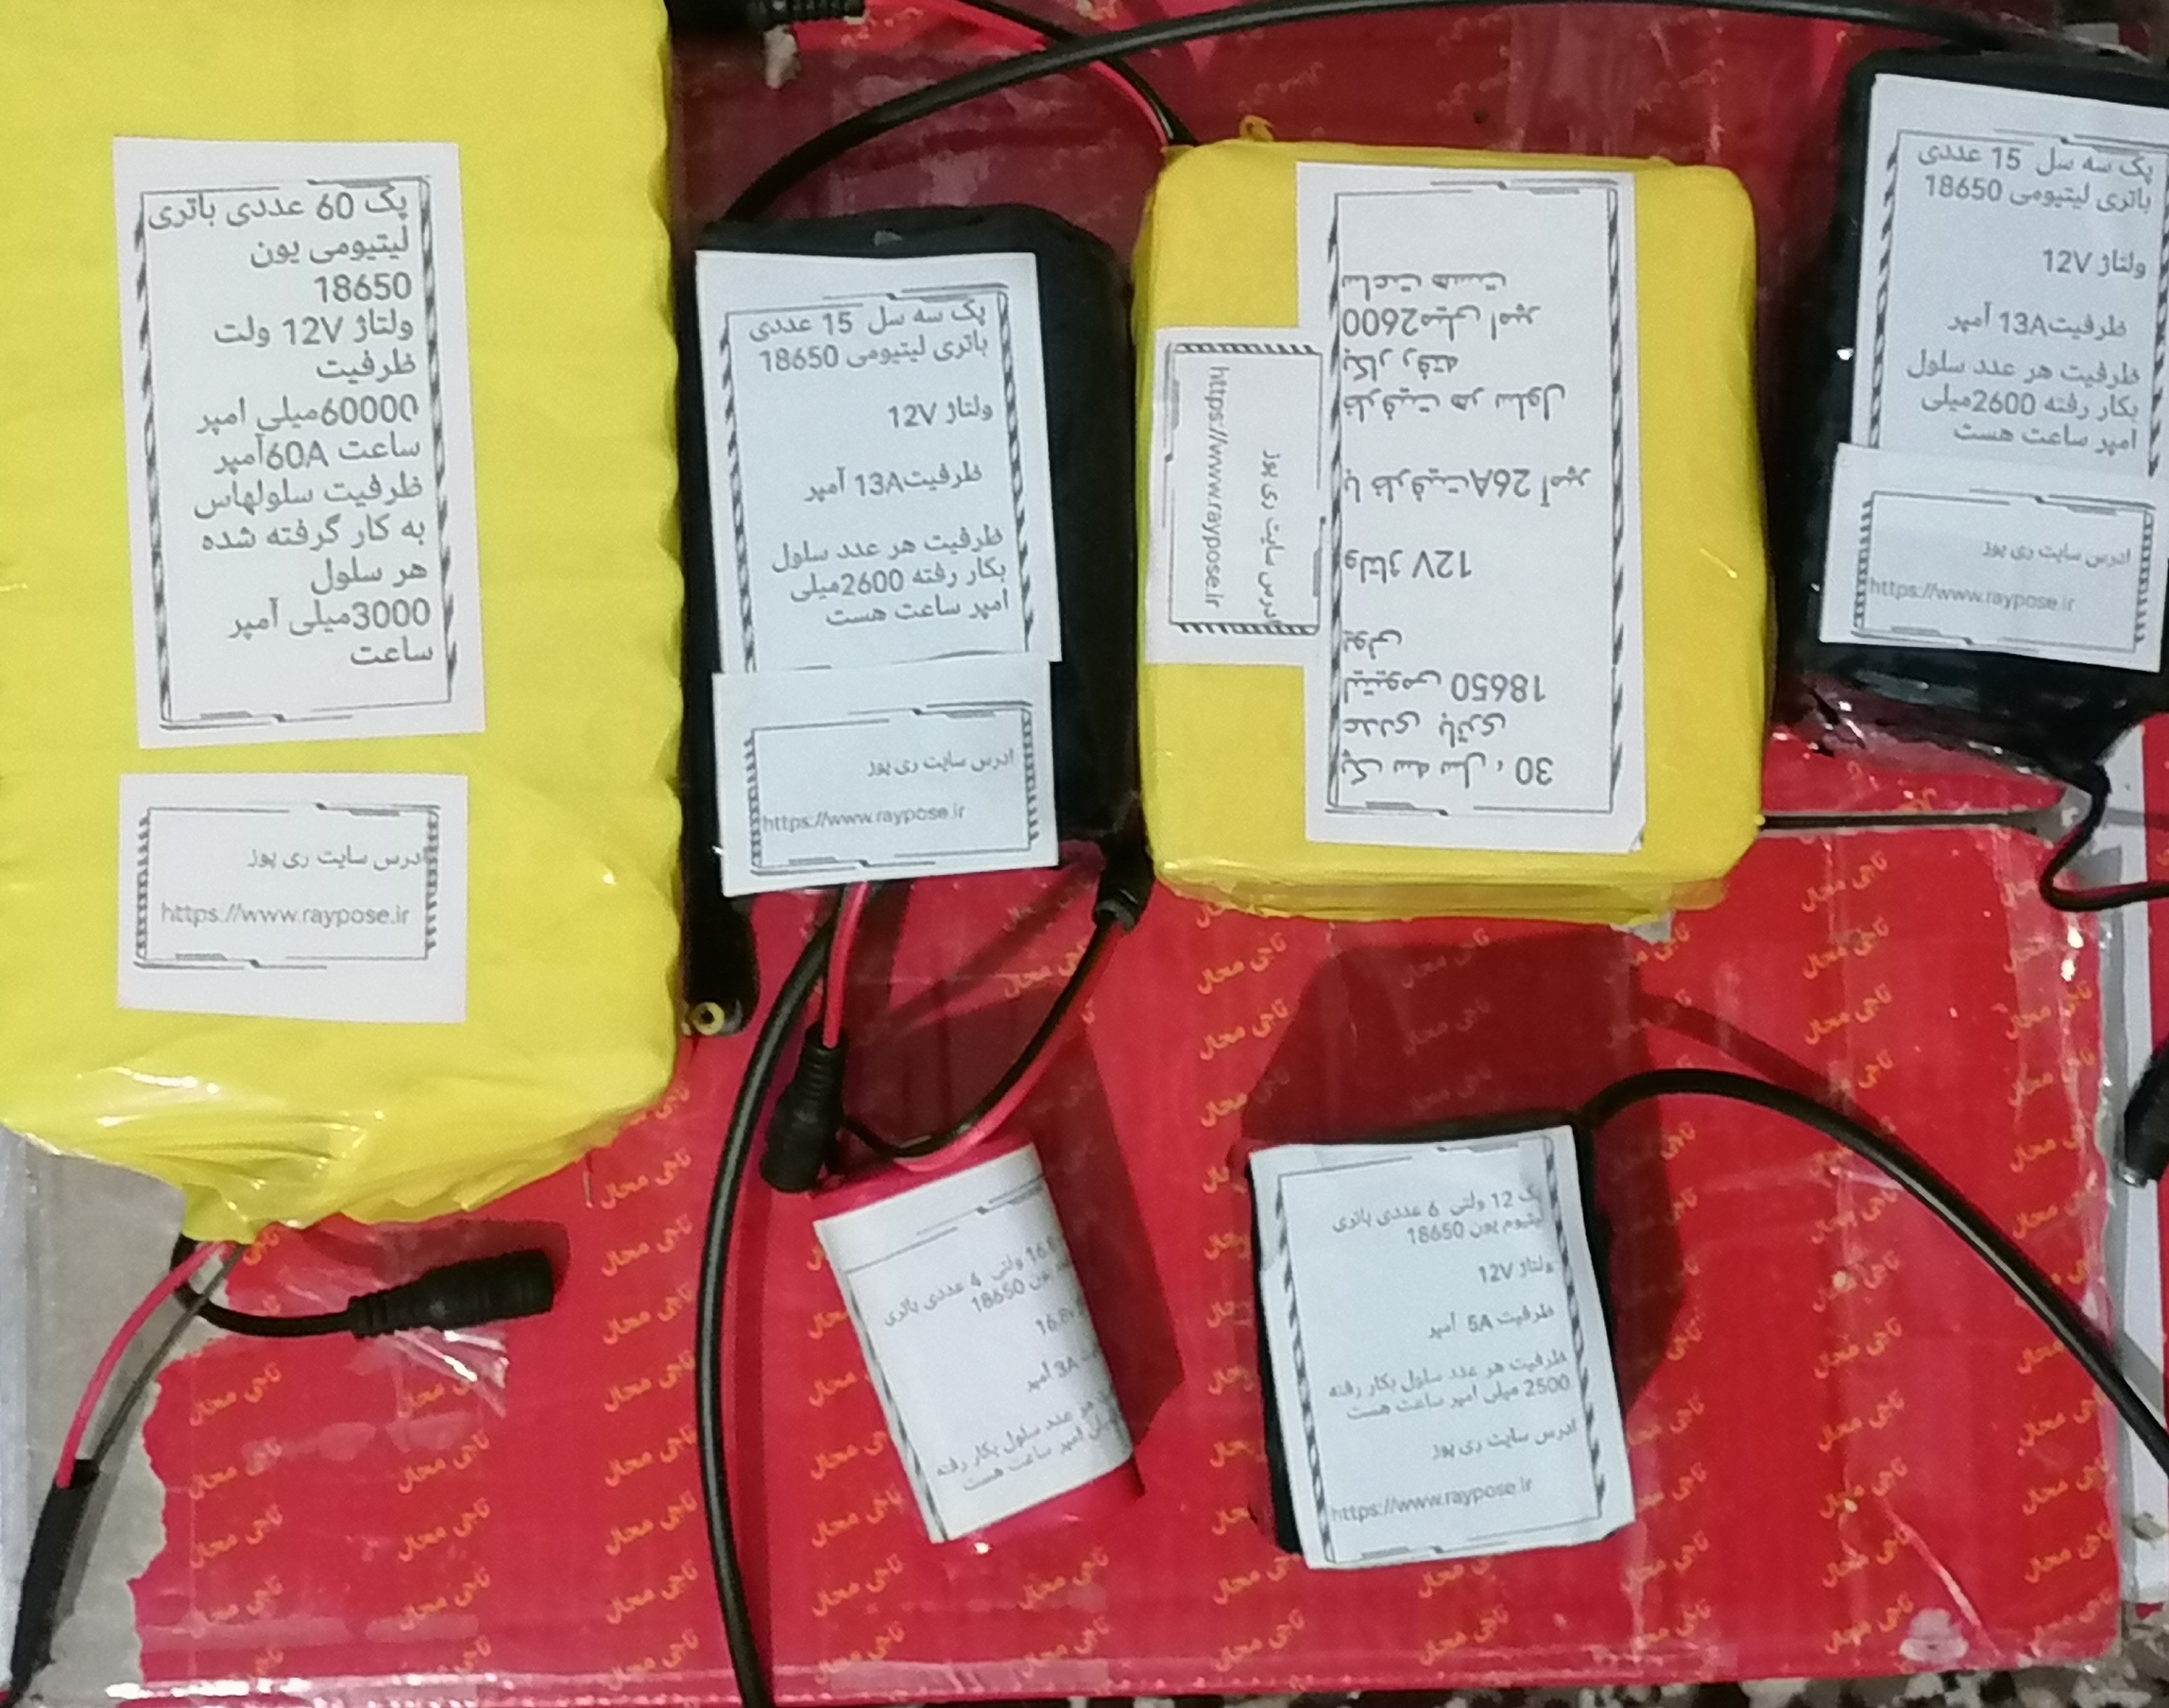 پک 60 عددی باتری
لیتیومی یون
18650
ولتاژ 12V ولت
ظرفیت
60000میلی امپر
ساعت 60Aآمپر
ظرفیت سلولهاس
به کار گرفته شده
هر سلول
3000میلی آمپر
ساعت
ادرس سایت ری پوز
https://www.raypose.ir
پک سه سل 15 عددی
باتری لیتیومی 18650
ولتاژ 12V
ظرفیت13A آمپر
ظرفیت هر عدد سلول
بکار رفته 2600میلی
امپر ساعت هست
ادرس سایت ری پوز
https://www.raypose.ir
پک سه سل ، 30
عددی باتری
لیتیومی 18650
یونی
ولتاژ 12V
با ظرفیت26A آمپر
ظرفیت هر سلول
بکار رفته
2600میلی امپر
ساعت هست
ادرس سایت ری پوز
https://www.raypose.ir
پک سه سل 15 عددی
باتری لیتیومی 18650
ولتاژ 12V
ظرفیت13A آمپر
ظرفیت هر عدد سلول
بکار رفته 2600میلی
امپر ساعت هست
ادرس سایت ری پوز
https://www.raypose.ir
ولتی 4 عددی باتری
18650
16.8v
3A آمپر
هر عدد سلول بکار رفته
امپر ساعت هست
12 ولتی 6 عددی باتری
لیتیوم یون 18650
ولتاژ 12V
ظرفیت 5A آمپر
ظرفیت هر عدد سلول بکار رفته
2500 میلی امپر ساعت هست
ادرس سایت ری پوز
https://www.raypose.ir
تاجی محال